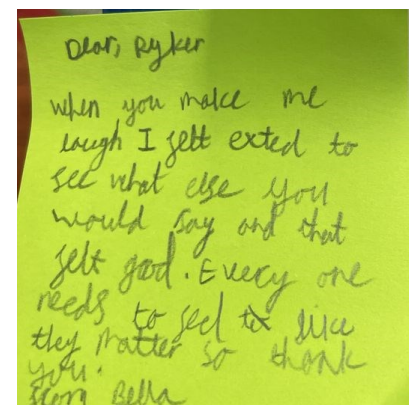 Dear, Ryker
when you make me
laugh I felt exted to
see what else you
would say and that
felt good. Every one
needs to feel like
they matter so thank
you.
from Bella